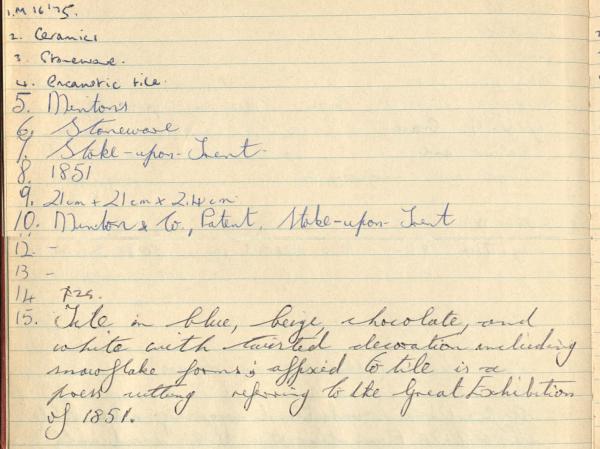 1. M 16175.
2. Ceramics
3. Stoneware.
4. encaustic tile.
5. Mintons
6. Stoneware
7. Stoke-upon-Trent.
8. 1851
9. 21cm + 21cm x 2.4cm.
10. Minton & Co., Patent. Stoke-upon-Trent
12. -
13 -
14
15. Tile in blue, beige, chocolate, and
white with twisted decoration including
snowflake forms; affixed to tile is a
press cutting referring to the Great Exhibition
of 1851.